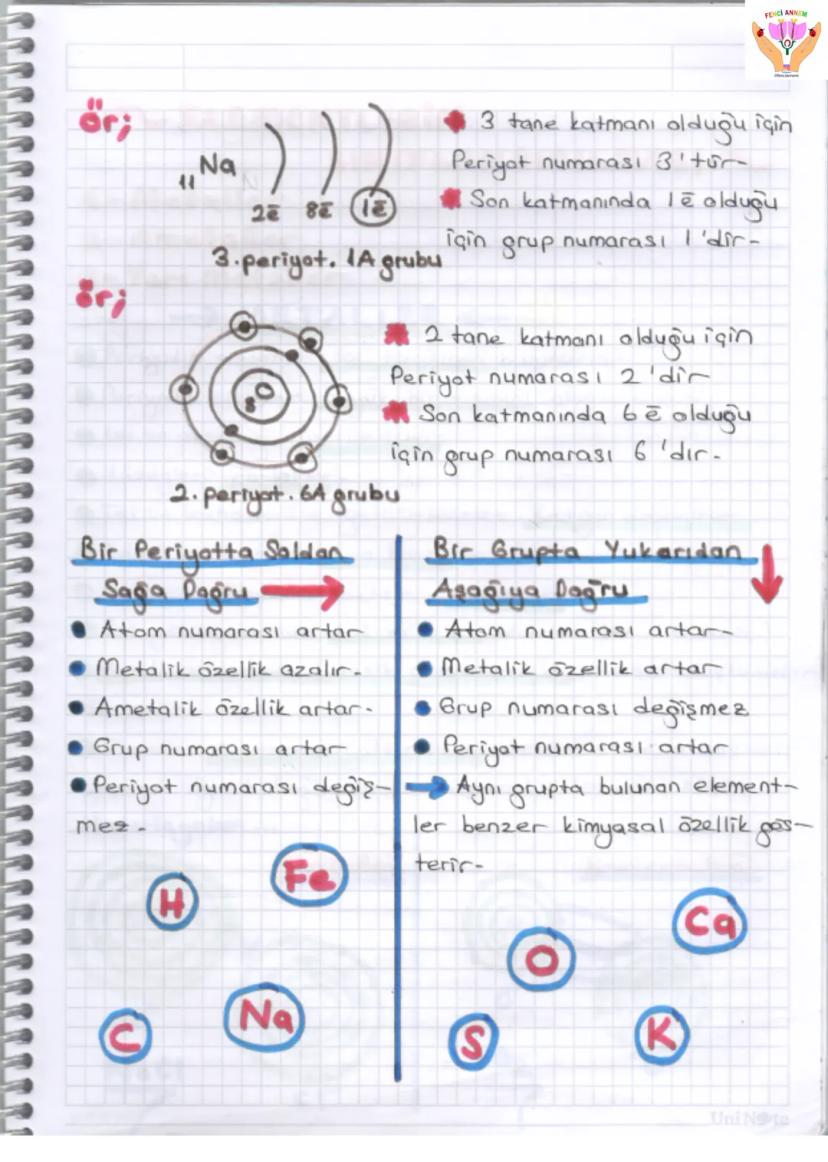 FENCİ ANNEM
Ör;
₁₁Na
2ē 8ē 1ē
3.periyot. 1A grubu
3 tane katmanı olduğu için
Periyot numarası 3'tür-
Son katmanında 1ē olduğu
için grup numarası 1'dir-
Ör;
₈O
2.periyot. 6A grubu
2 tane katmanı olduğu için
Periyot numarası 2'dir
Son katmanında 6ē olduğu
için grup numarası 6'dır.
Bir Periyotta Soldan
Sağa Doğru
Atom numarası artar
Metalik özellik azalır.
Ametalik özellik artar.
Grup numarası artar
Periyot numarası değiş-
mez.
H
Fe
C
Na
Bir Grupta Yukarıdan
Aşağıya Doğru
Atom numarası artar-
Metalik özellik artar
Grup numarası değişmez
Periyot numarası artar
Aynı grupta bulunan element-
ler benzer kimyasal özellik gös-
terir-
Ca
O
S
K
UniNote